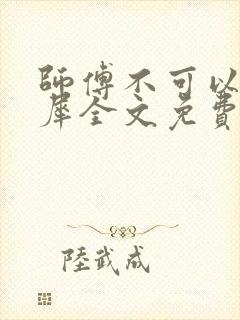 師傅不可以
犀全文免費
陸武成